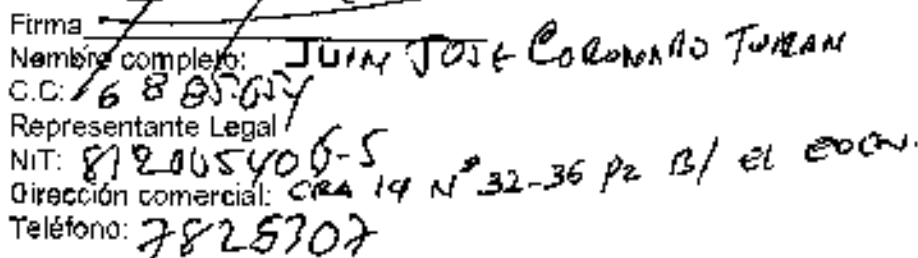 Firma
Nombre completo: JUAN JOSE CORONADO TURMAN
C.C: 6885654
Representante Legal
NIT: 812005406-5
Dirección comercial: CRA 14 Nº 32-36 P2 B/ EL
Teléfono: 7825707